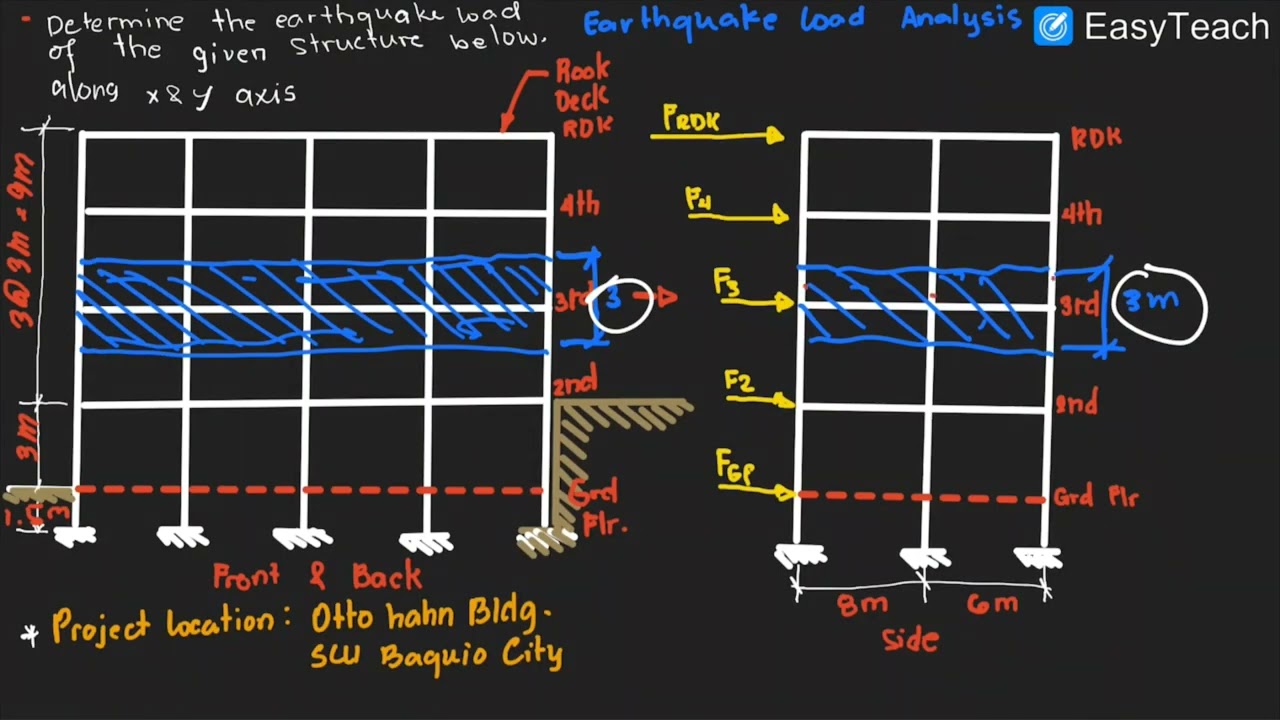 - Determine the earthquake load
of the given structure below.
along x & y axis
Earthquake Load Analysis
EasyTeach
Rook
Deck
RDK
4th
3rd
3
2nd
Grd
Flr.
3@3m = 9m
3m
FRDK
F4
F3
F2
FGP
RDK
4th
3rd
3m
2nd
Grd Flr
8m
6m
Side
Front & Back
* Project location: Otto hahn Bldg.
SLU Baguio City